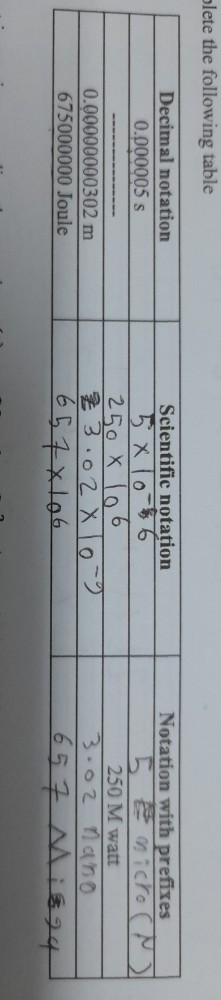 plete the following table
Decimal notation Scientific notation Notation with prefixes
0.000005 s 5 × 10⁻⁶ 5 micro (N)
-------------- 250 × 10⁶ 250 M watt
0.00000000302 m 3.02 × 10⁻⁹ 3.02 nano
675000000 Joule 657 × 10⁶ 657